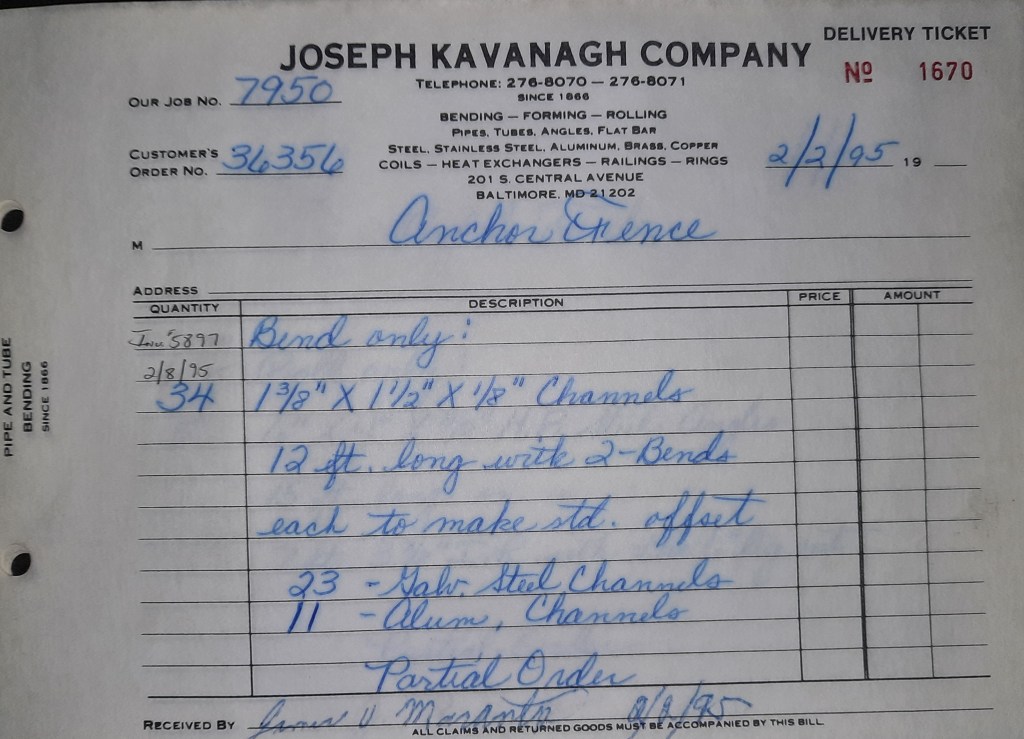 DELIVERY TICKET
JOSEPH KAVANAGH COMPANY
Nº 1670
TELEPHONE: 276-8070 — 276-8071
SINCE 1866
OUR JOB NO. 7950
BENDING — FORMING — ROLLING
PIPES, TUBES, ANGLES, FLAT BAR
STEEL, STAINLESS STEEL, ALUMINUM, BRASS, COPPER
CUSTOMER'S ORDER NO. 36356
COILS — HEAT EXCHANGERS — RAILINGS — RINGS
2/2/95 19
201 S. CENTRAL AVENUE
BALTIMORE, MD 21202
M Anchor Fence
ADDRESS
QUANTITY DESCRIPTION PRICE AMOUNT
Inv #5897 Bend only:
2/8/95
34 1 3/8" X 1 1/2" X 1/8" Channels
12 ft. long with 2-Bends
each to make std. offset
23 - Galv. Steel Channels
11 - Alum, Channels
Partial Order
RECEIVED BY James
ALL CLAIMS AND RETURNED GOODS MUST BE ACCOMPANIED BY THIS BILL
PIPE AND TUBE
BENDING
SINCE 1866